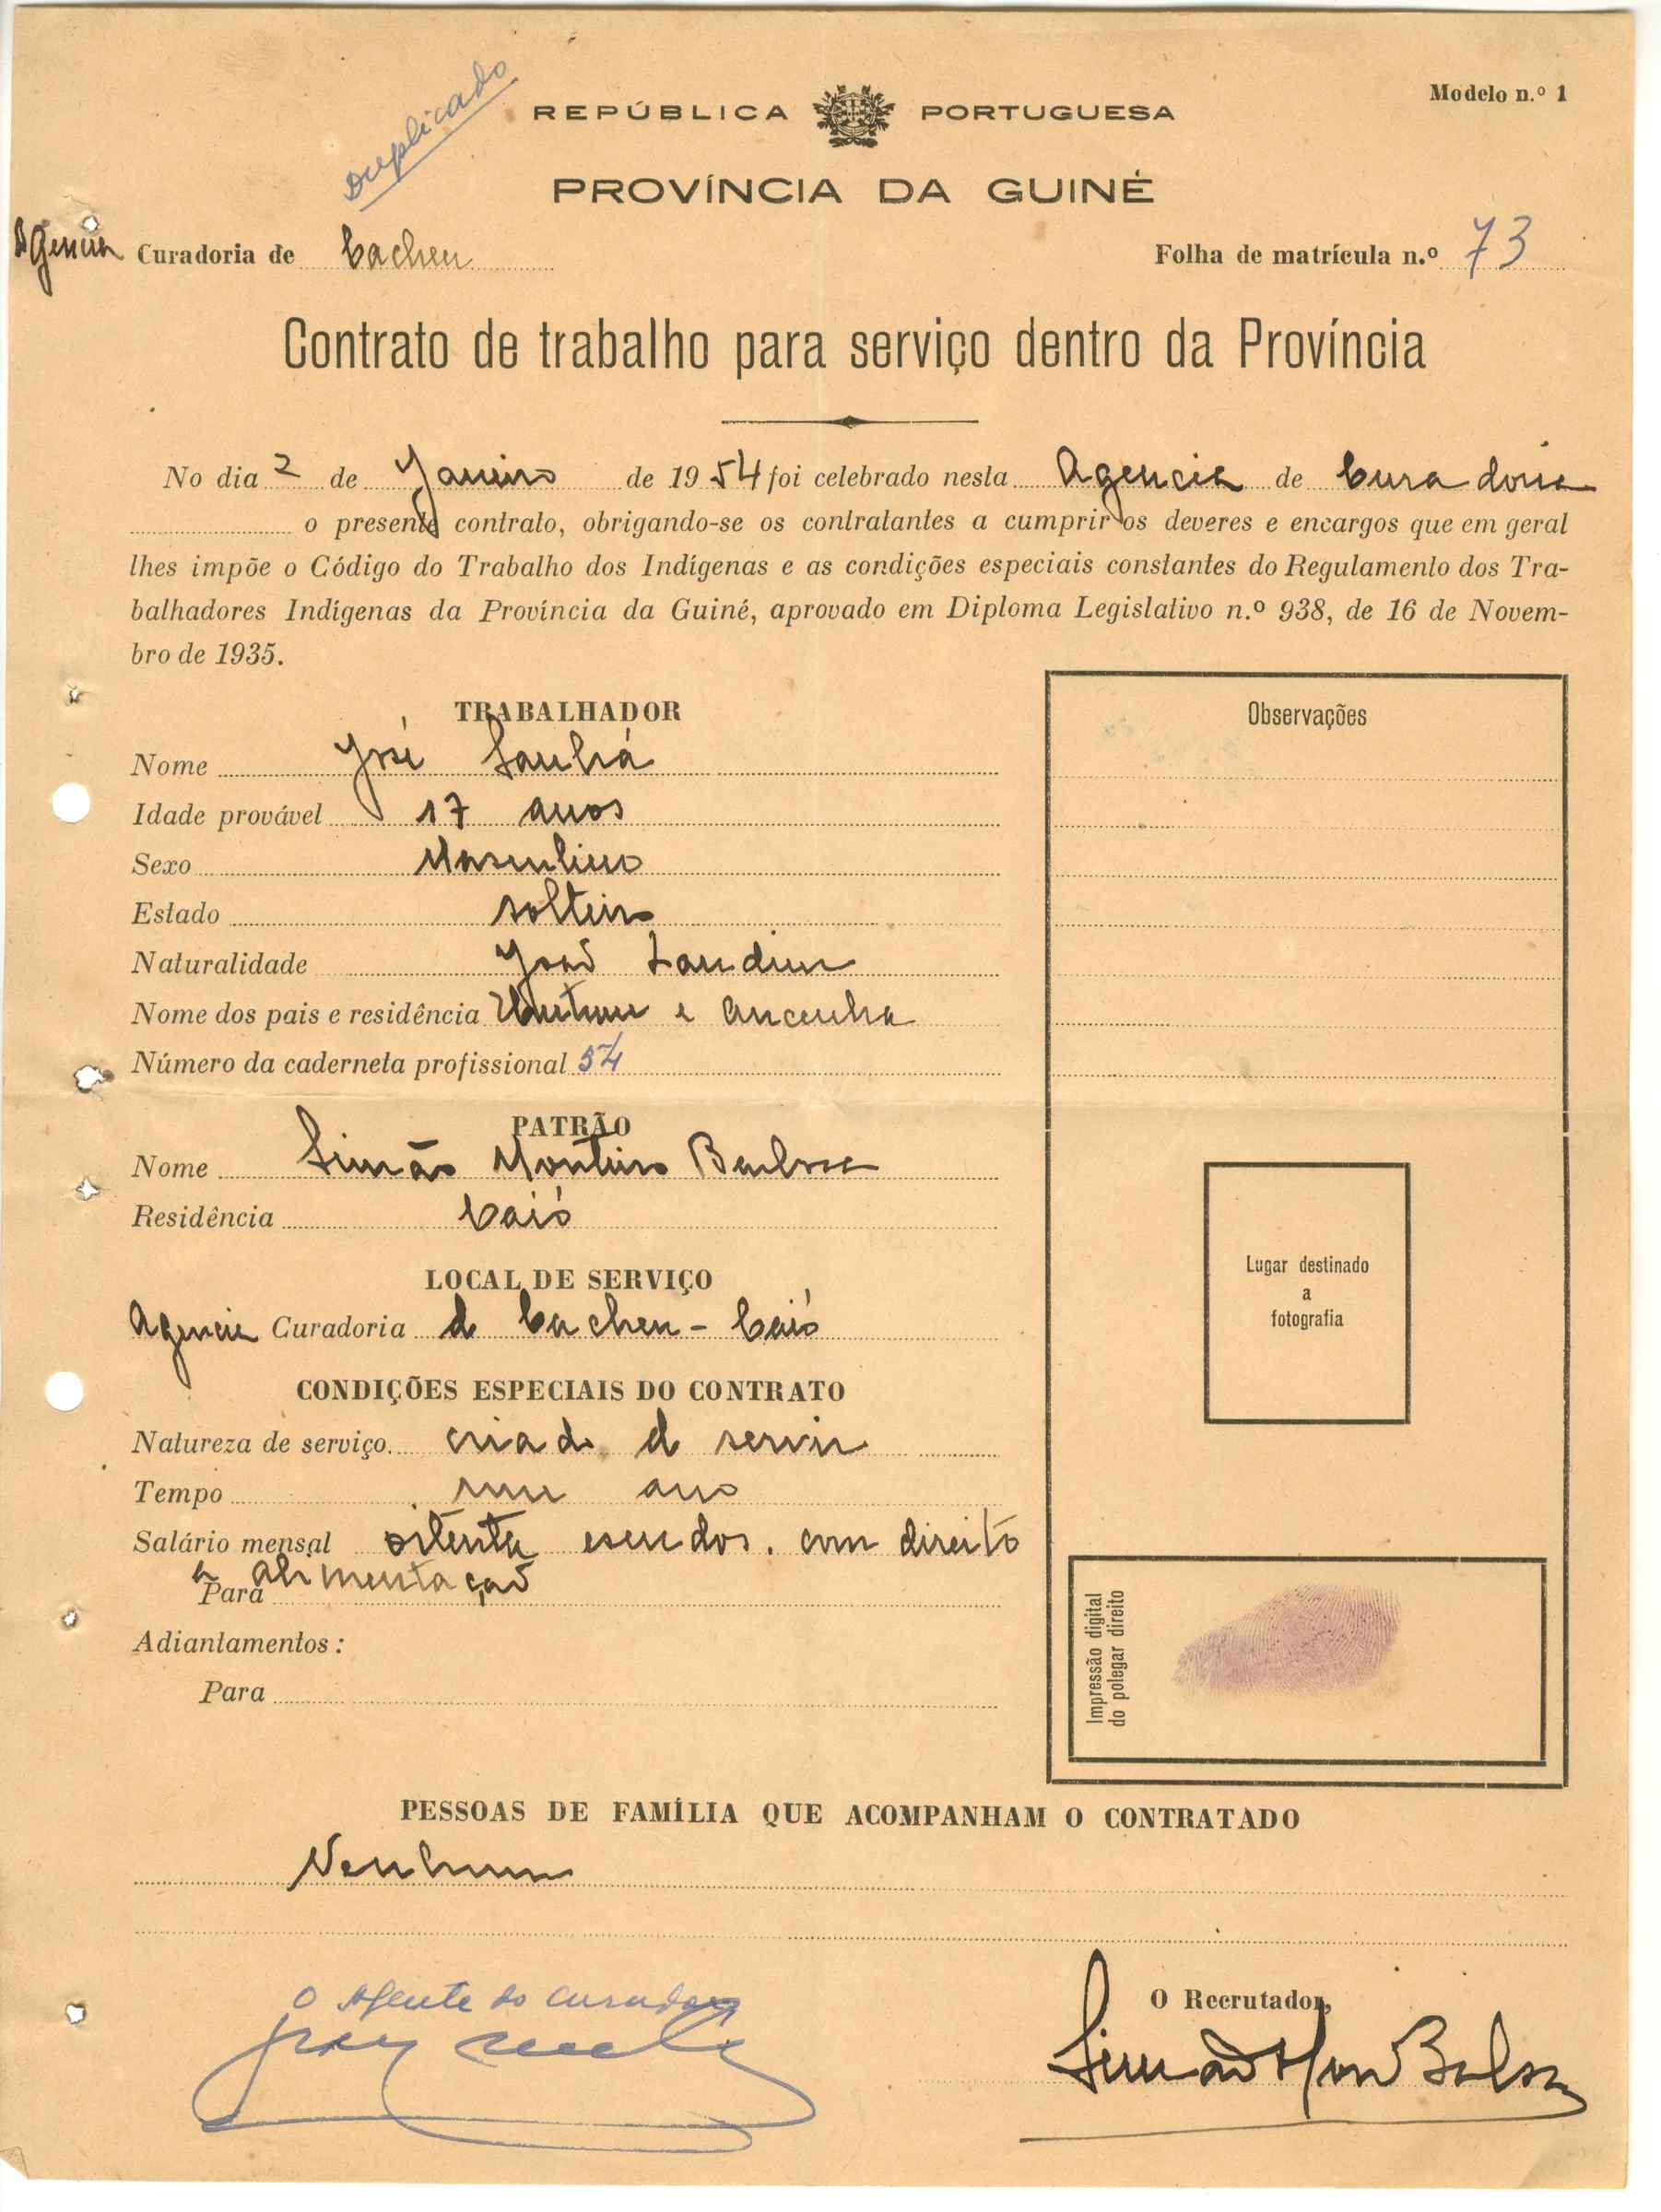 Duplicado
Modelo n.º 1
REPÚBLICA PORTUGUESA
PROVÍNCIA DA GUINÉ
Agencia Curadoria de Cacheu
Folha de matrícula n.º 73
Contrato de trabalho para serviço dentro da Província
No dia 2 de Janeiro de 1954 foi celebrado nesta Agencia de Curadoria
o presente contrato, obrigando-se os contratantes a cumprir os deveres e encargos que em geral
lhes impõe o Código do Trabalho dos Indígenas e as condições especiais constantes do Regulamento dos Tra-
balhadores Indígenas da Província da Guiné, aprovado em Diploma Legislativo n.º 938, de 16 de Novem-
bro de 1935.
TRABALHADOR
Nome José Sanhá
Idade provável 17 anos
Sexo Masculino
Estado solteiro
Naturalidade João Landim
Nome dos pais e residência e
Número da caderneta profissional 54
PATRÃO
Nome Simão Monteiro Barbosa
Residência Caió
LOCAL DE SERVIÇO
Agencia Curadoria de Cacheu - Caió
CONDIÇÕES ESPECIAIS DO CONTRATO
Natureza de serviço criado de servir
Tempo um ano
Salário mensal oitenta escudos. com direito
a alimentação
Para
Adiantamentos :
Para
Observações
Lugar destinado
a
fotografia
Impressão digital
do polegar direito
PESSOAS DE FAMÍLIA QUE ACOMPANHAM O CONTRATADO
Nenhum
O Agente do Curador
O Recrutador,